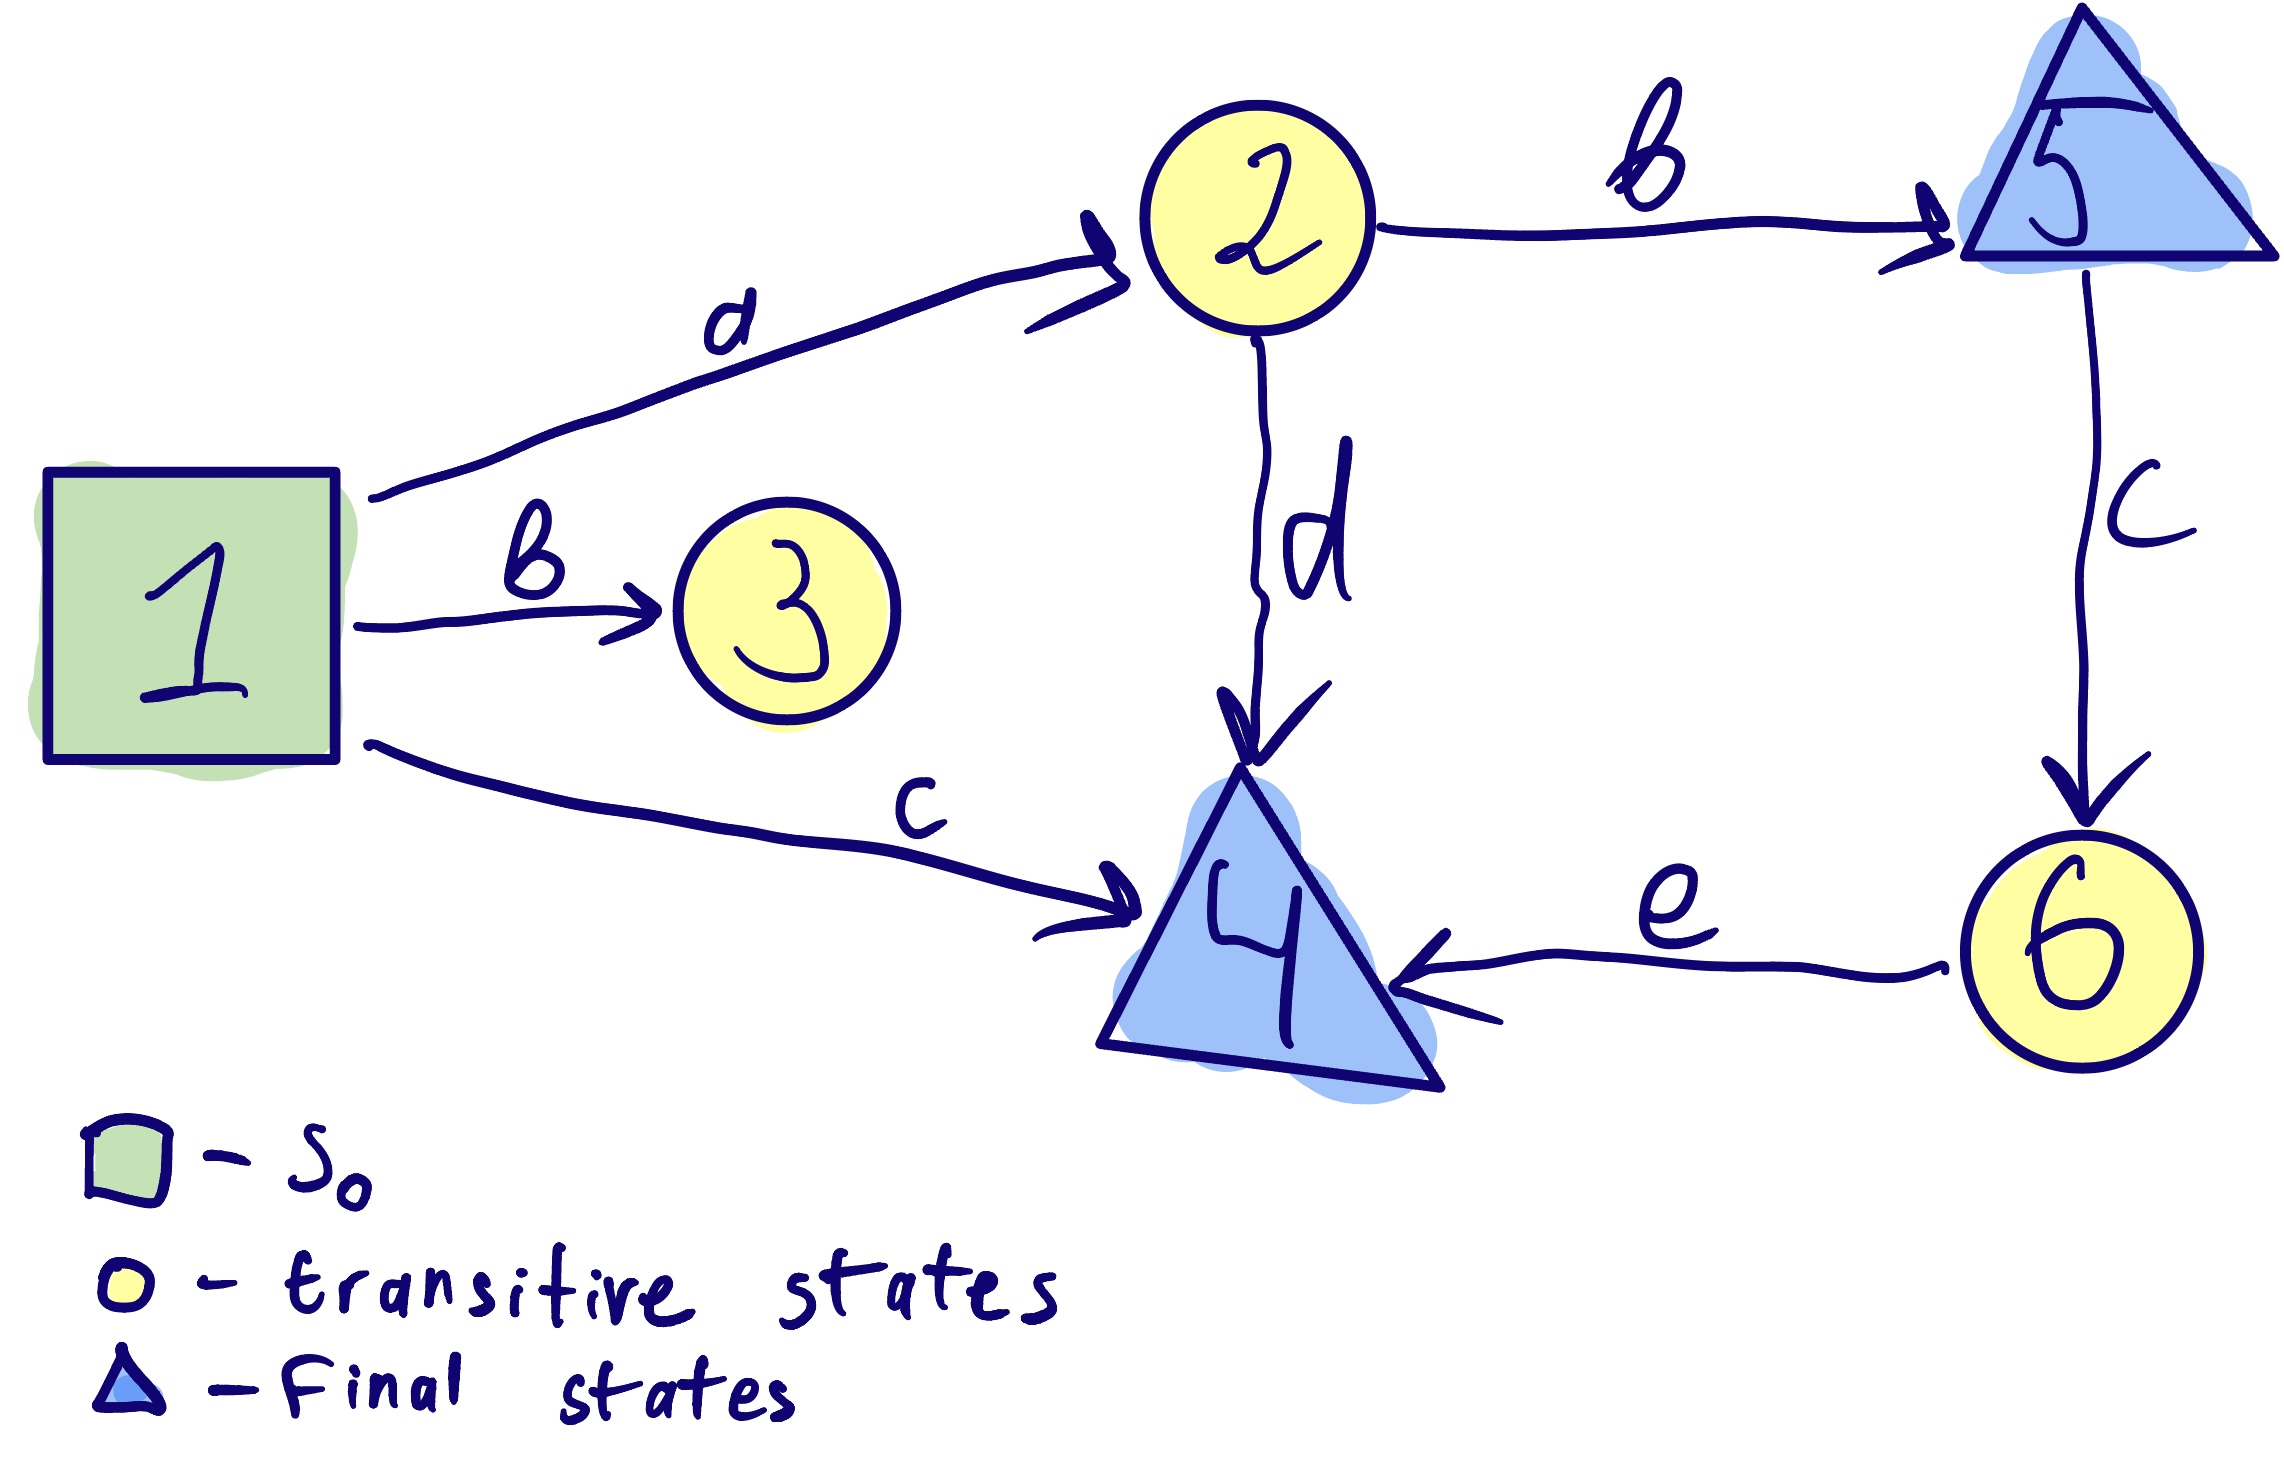 5
b
2
a
d
c
1
b
3
c
4
e
6
- S0
- transitive states
- Final states